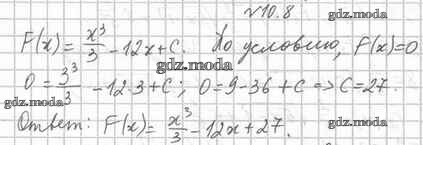 №10.8
gdz.moda
F(x) = x³/3 - 12x + C. По условию, F(x)=0
gdz.moda
0 = 3³/3 - 12·3 + C; 0 = 9 - 36 + C => C = 27.
gdz.moda
gdz.moda
Ответ: F(x) = x³/3 - 12x + 27.
gdz.moda